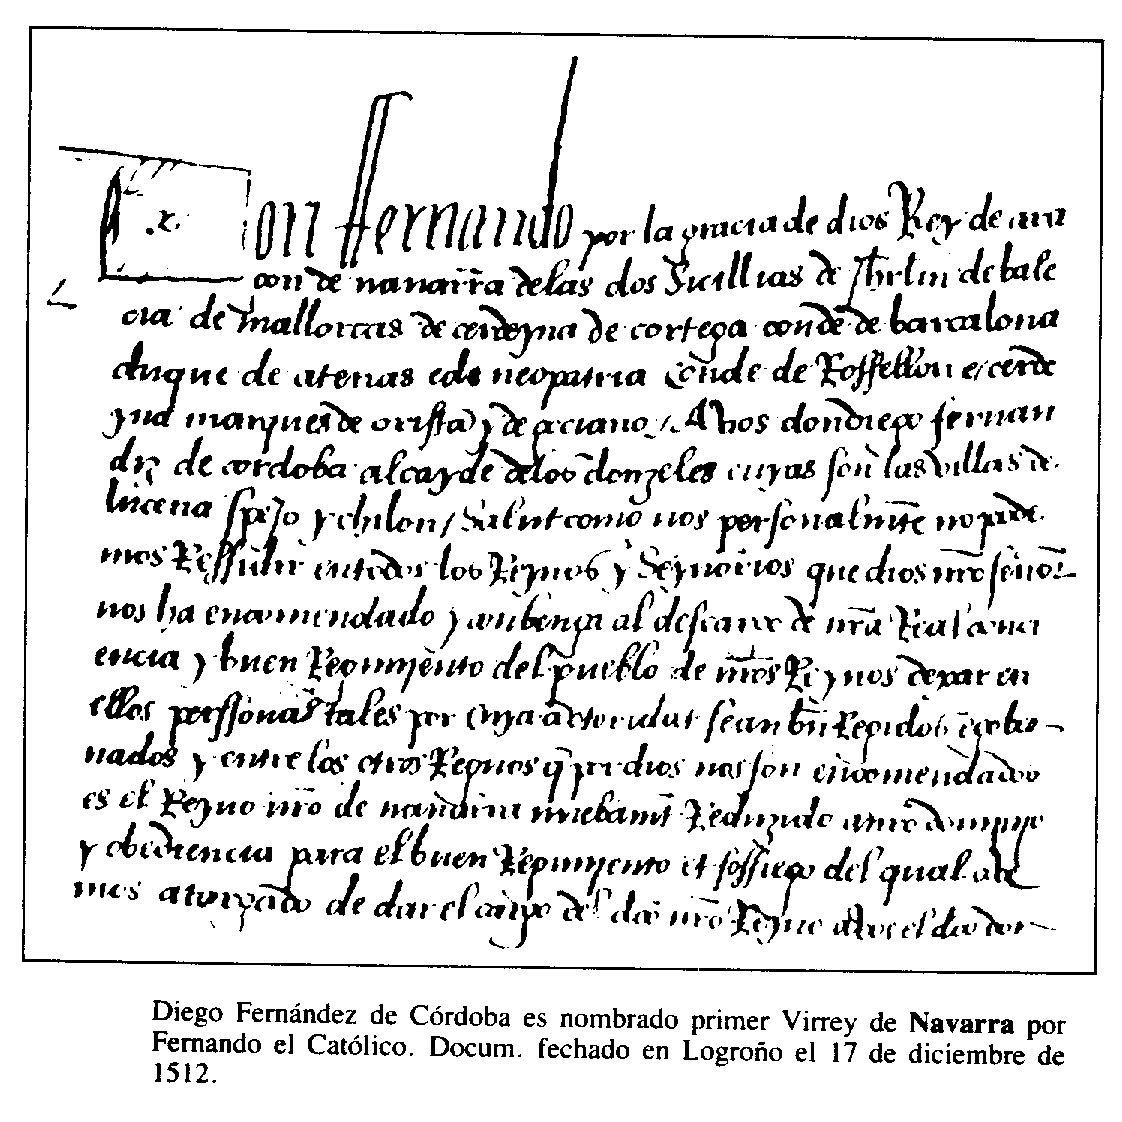 Don ffernando por la gracia de dios Rey de ara
con de nauarra de las dos Sicilias de Jhrlm de vale
cia de mallorcas de cerdeyna de cortega conde de barcalona
duque de atenas e de neopatria Conde de Rossellon e cerde
yna marques de oristan y de gociano / A vos don diego fernan
drz de cordoba alcayde de los donzeles cuyas son las villas de
lucena spejo y chilon / Salut como nos personalmẽte no pode
mos Ressidir en todos los Reynos y Seynorios que dios nrõ señor
nos ha encomendado y conbenga al descanso de nrã Real
encia y buen Regimjento del pueblo de nrõs Reynos dexar en
ellos perssonas tales por cuya actoridat sean biẽ Regidos e gober
nados y entre los otros Regnos q̃ por dios nos son encomendados
es el Reyno nrõ de nauarra nuebamẽt Reduzido a nrã
y obediencia para el buen Regimjento et sossiego del qual abe
mos acordado de dar el cargo del dco nrõ Reyno a vos el dco don
Diego Fernández de Córdoba es nombrado primer Virrey de Navarra por
Fernando el Católico. Docum. fechado en Logroño el 17 de diciembre de
1512.